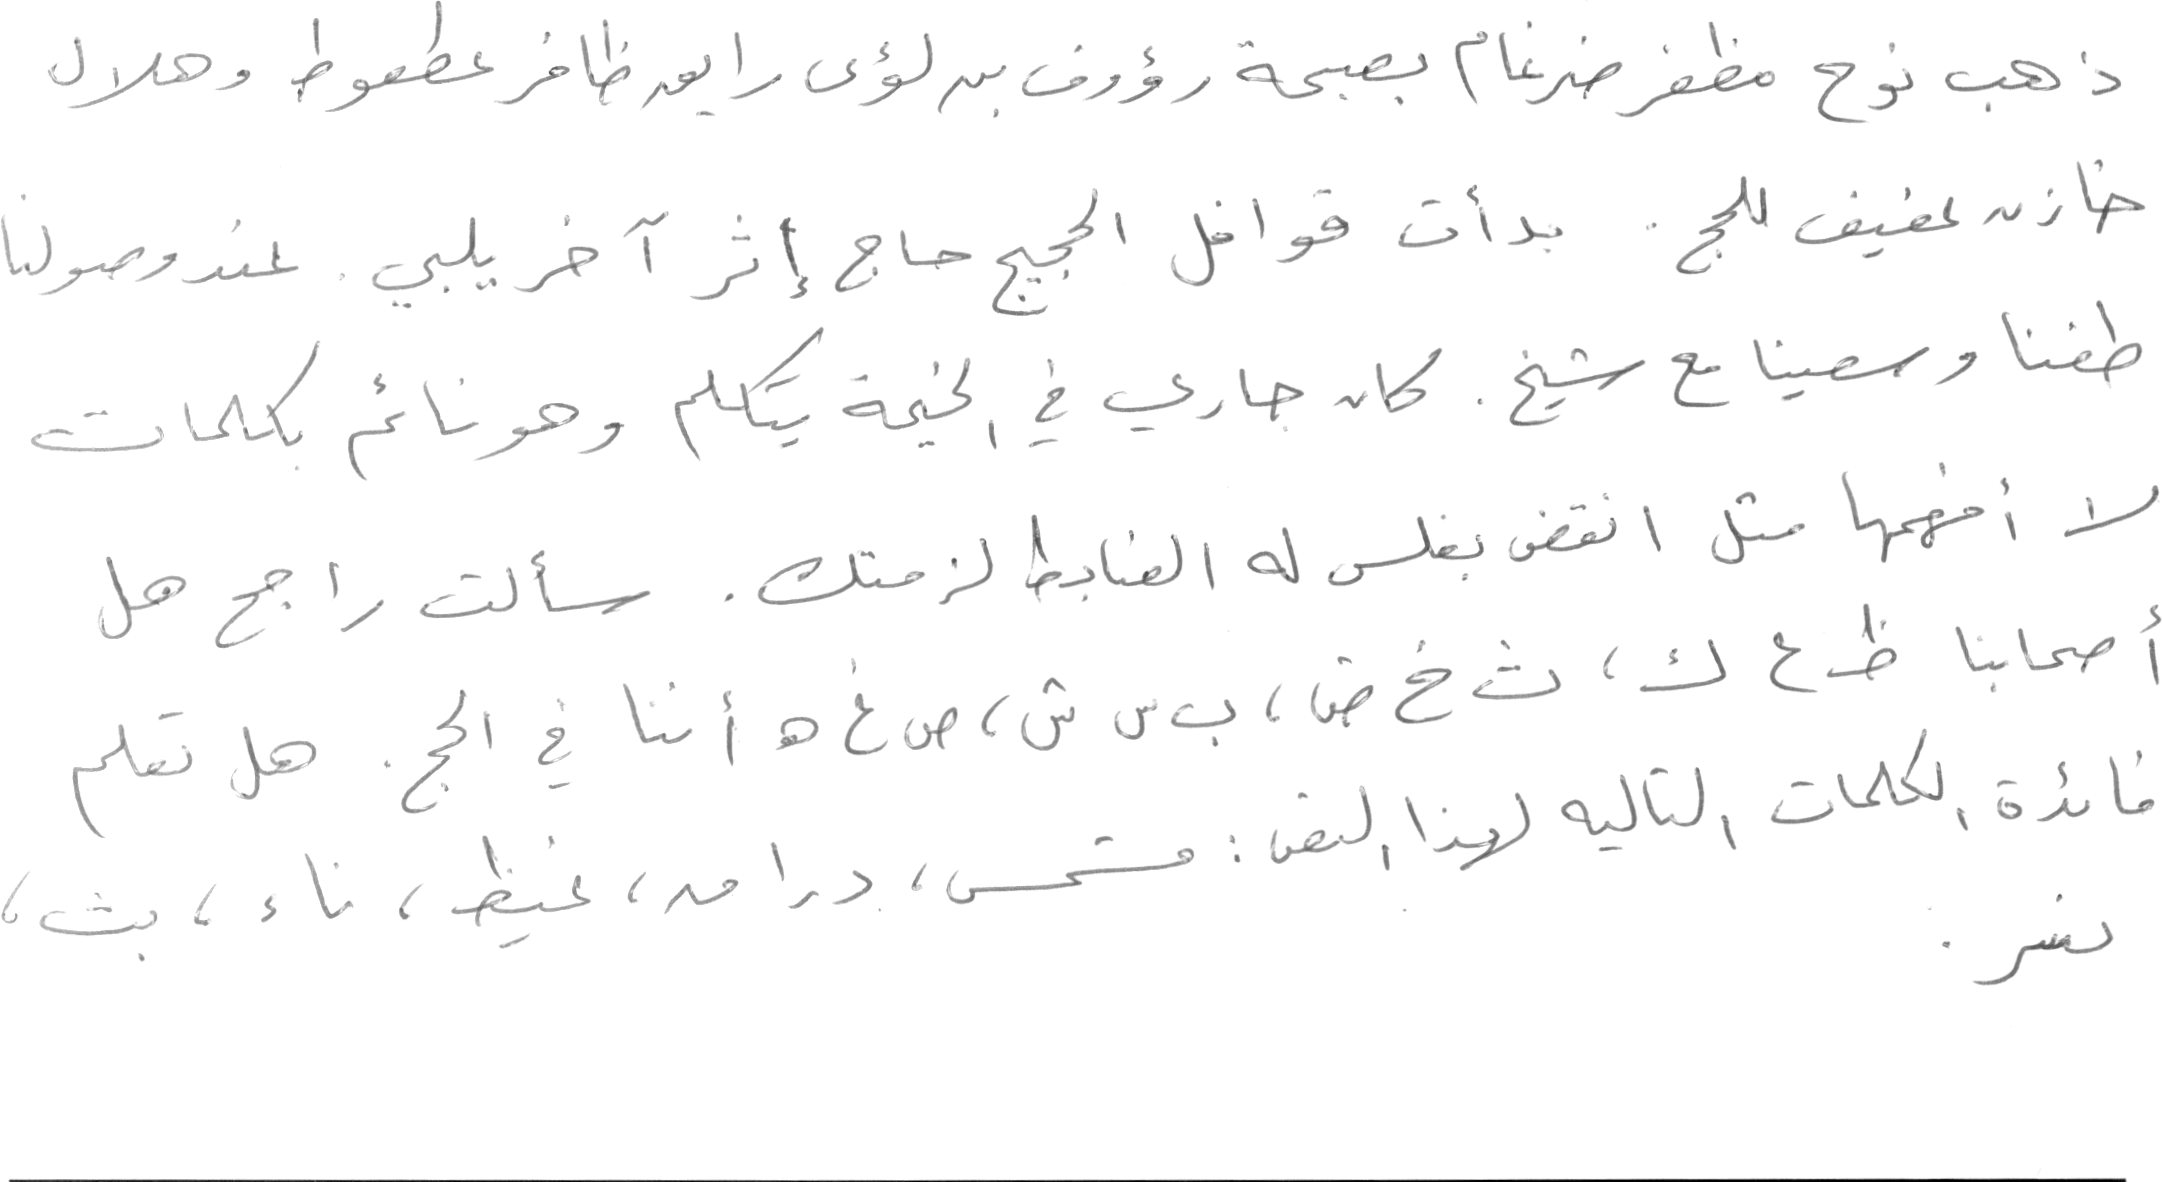 ذهب نوح مظفر ضرغام بصبحة رؤوف بن لؤى رايق ظافر عطعوط وهلال
خازن عفيف للحج . بدأت قوافل الحجيج حاج إثر آخر يلبي . عند وصولنا
طفنا وسعينا مع شيخ . كان جاري في الخيمة يتكلم وهو نائم بكلمات
لا أفهمها مثل انقض بغلس له الضابط لزمتك . سألت راجح هل
أصحابنا ظ ع ك ، ث خ ض ، ب س ش ، ص غ ه أننا في الحج . هل تعلم
فائدة الكلمات التاليه لهذا النص : مشمس ، دامن ، غيظ ، ناء ، بث ،
نسر .